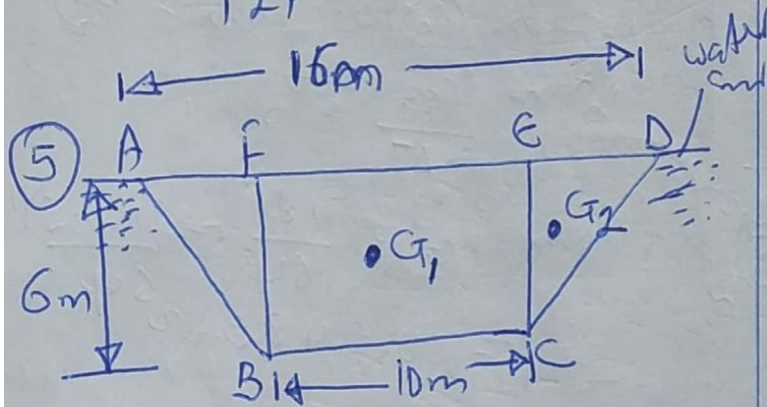 16m
water
5 A F E D
G1 G2
6m
B 10m C